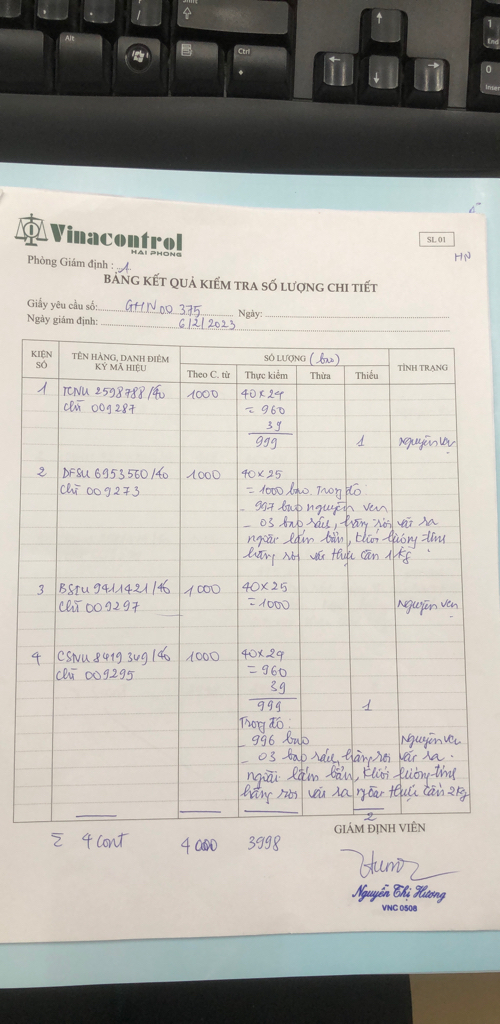 Alt
Ctrl
End
0
Inser
Vinacontrol
HAI PHONG
SL 01
HN
Phòng Giám định : 1
BẢNG KẾT QUẢ KIỂM TRA SỐ LƯỢNG CHI TIẾT
Giấy yêu cầu số: GHN 00 375 Ngày:
Ngày giám định: 6/2/2023
KIỆN SỐ TÊN HÀNG, DANH ĐIỂM KÝ MÃ HIỆU SỐ LƯỢNG (bao) TÌNH TRẠNG
Theo C. từ Thực kiểm Thừa Thiếu
1 TCNU 2598788/40 1000 40×24
chì 009287 = 960
39
999 1 Nguyên vẹn
2 DFSU 6953560/40 1000 40×25
chì 009273 = 1000 bao. Trong đó
- 997 bao nguyên vẹn
- 03 bao rách, hàng rơi vãi ra
ngoài lấm bẩn, khối lượng tịnh
hàng rơi vãi thực cân 1 kg.
3 BSIU 9411421/40 1000 40×25
chì 009297 = 1000 Nguyên vẹn
4 CSNU 8419349/40 1000 40×24
chì 009295 = 960
39
999 1
Trong đó:
- 996 bao Nguyên vẹn
- 03 bao rách, hàng rơi vãi ra
ngoài lấm bẩn, khối lượng tịnh
hàng rơi vãi ra ngoài thực cân 2kg
2
Σ 4 cont 4000 3998
GIÁM ĐỊNH VIÊN
Nguyễn Thị Hương
VNC 0508